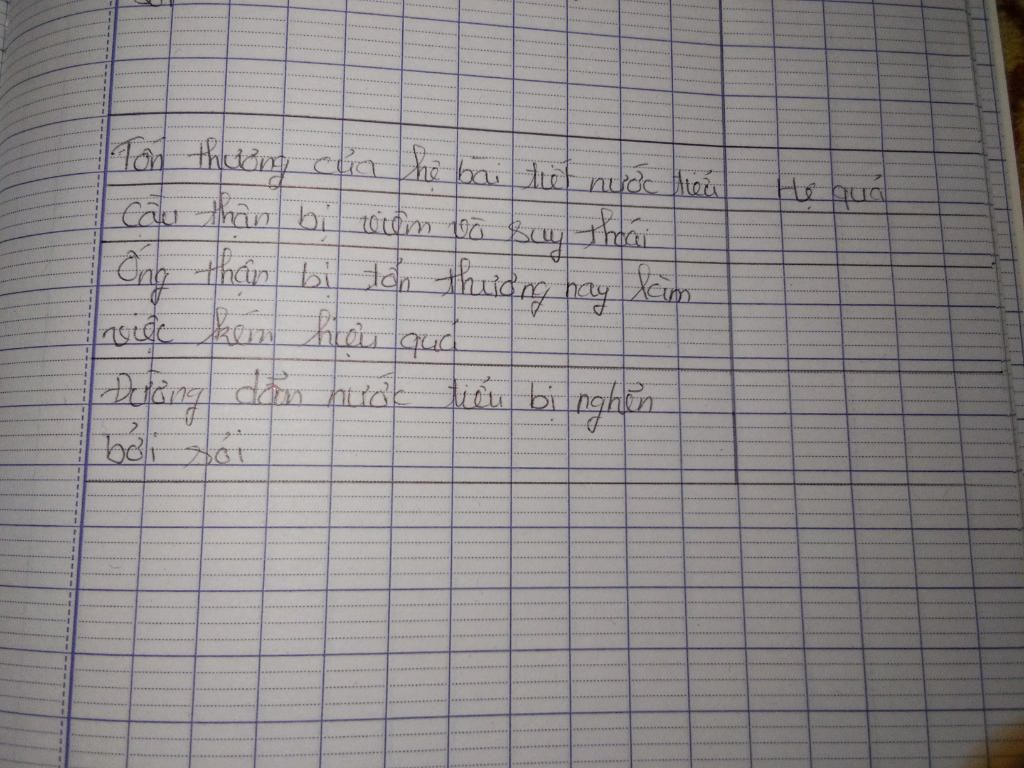 Tổn thương của hệ bài tiết nước tiểu Hệ quả
Cầu thận bị viêm và suy thoái
Ống thận bị tổn thương hay làm
việc kém hiệu quả
Đường dẫn nước tiểu bị nghẽn
bởi sỏi